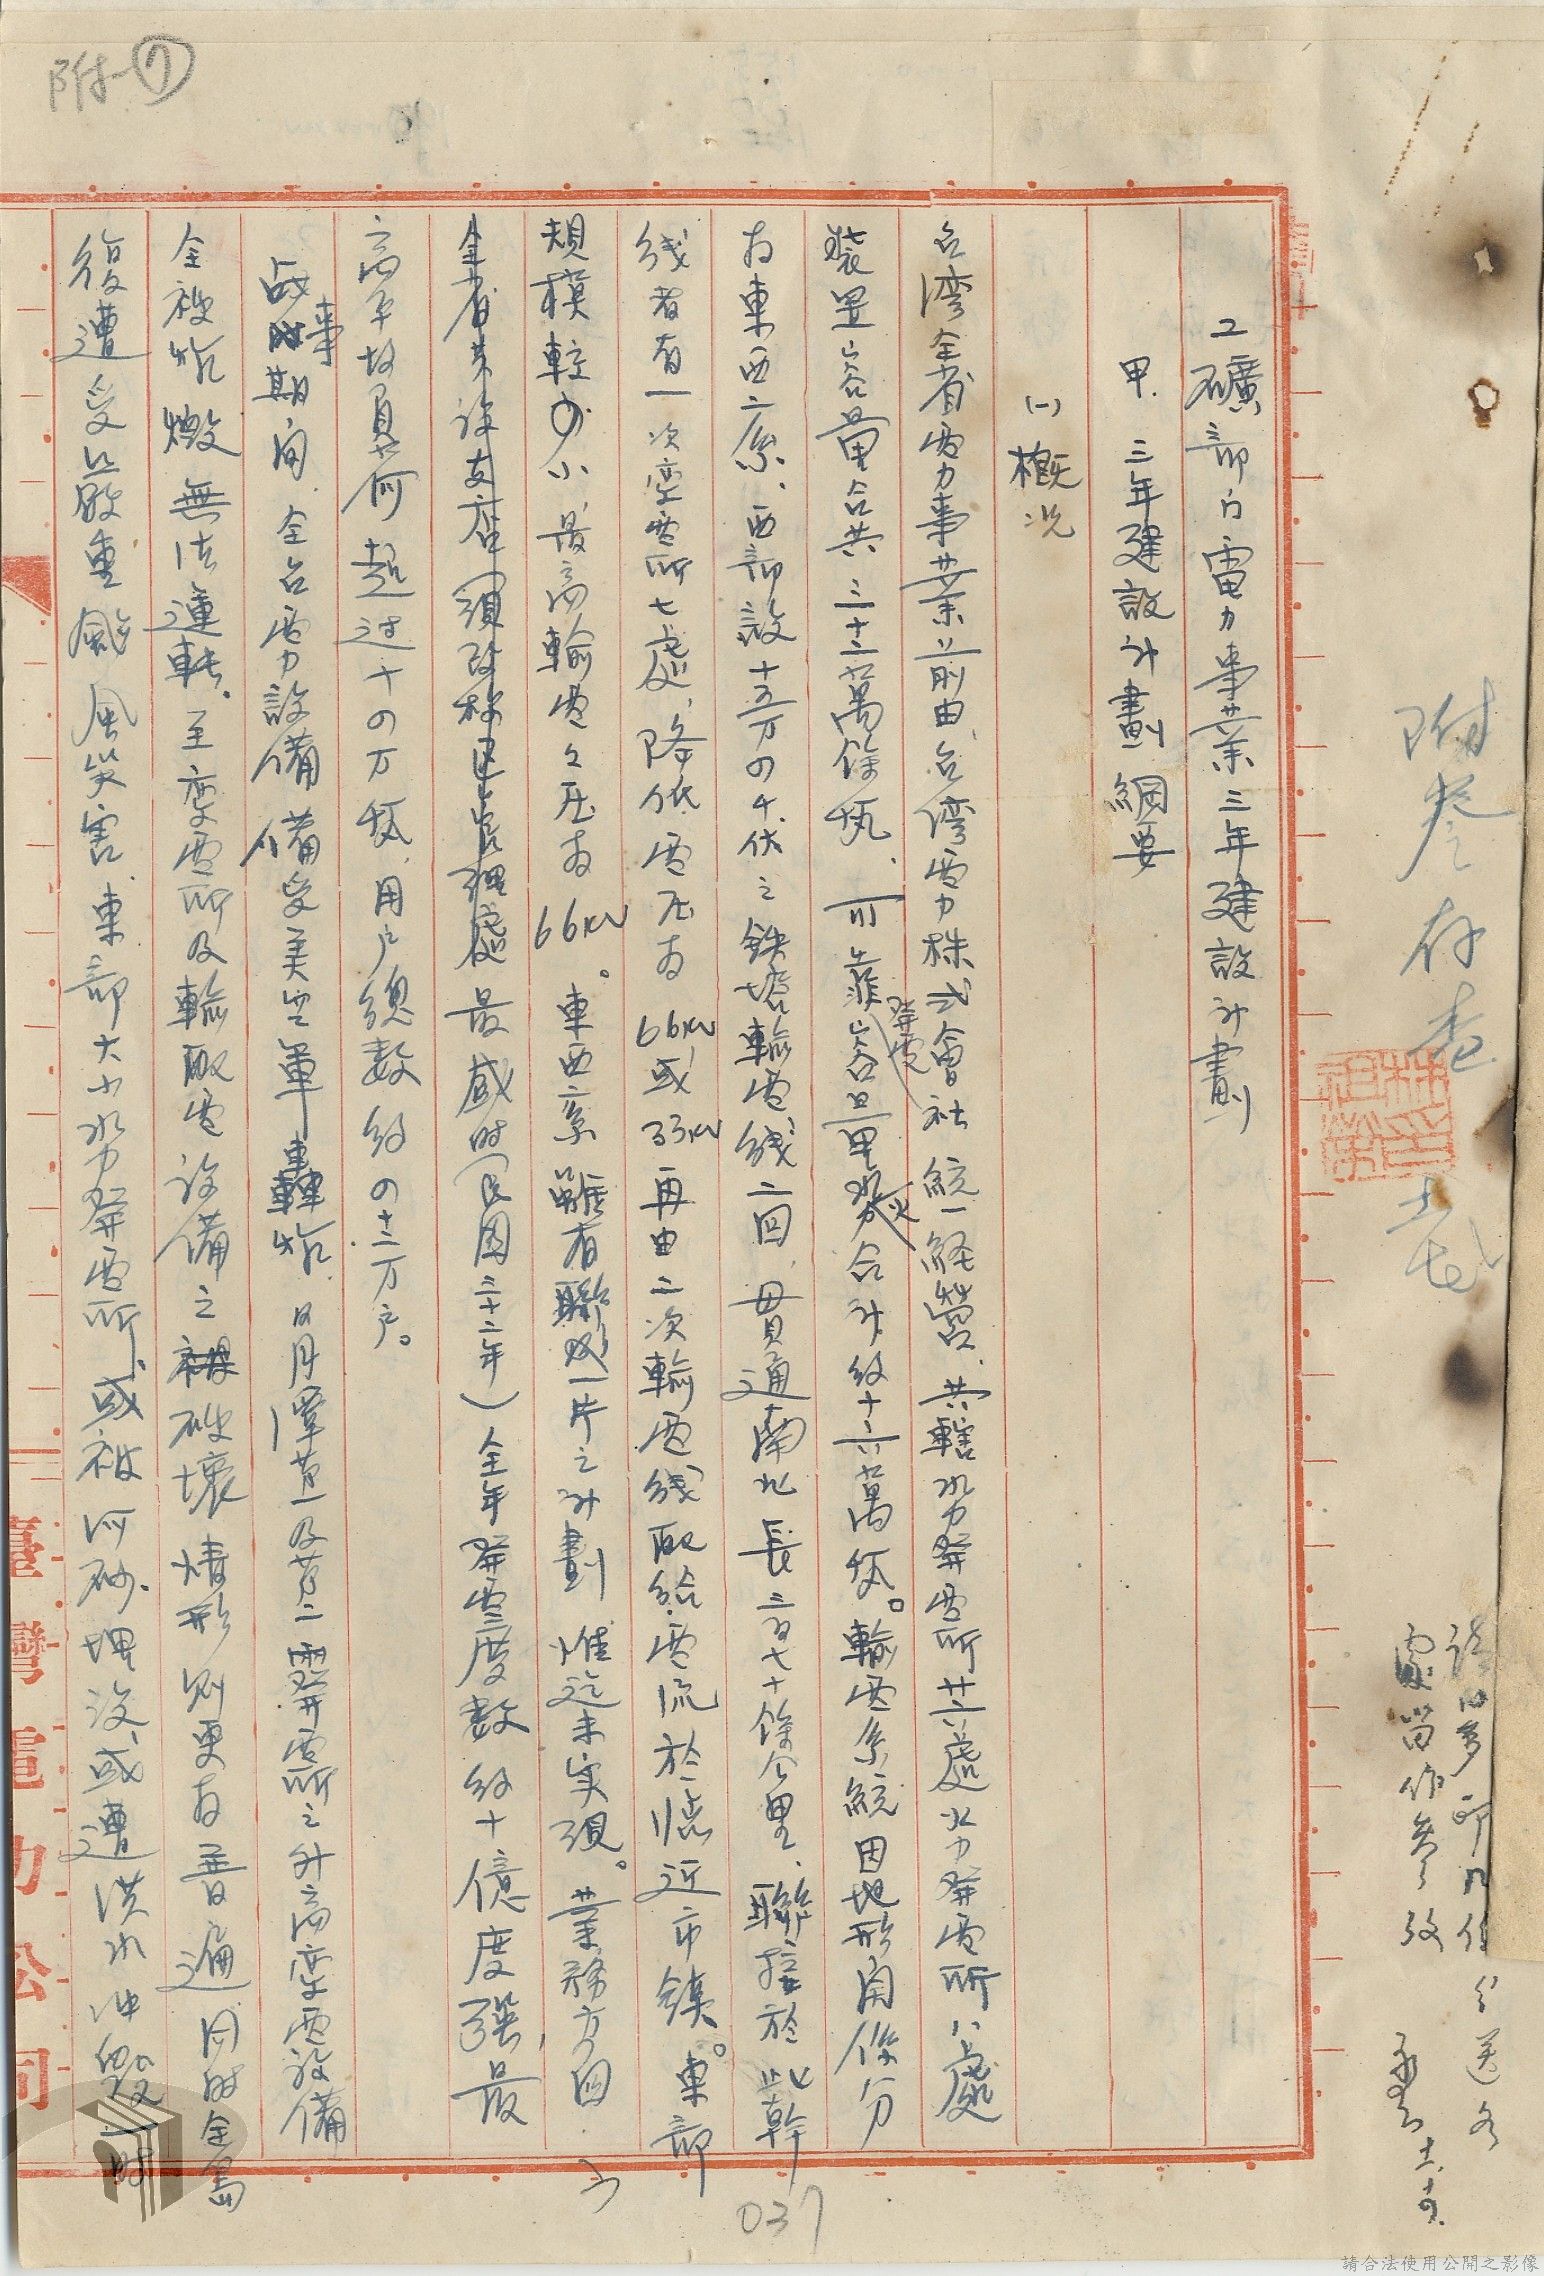 附①
工礦部门電力事業三年建設计劃
甲、三年建設计劃綱要
(一)概况
台湾全省電力事業以前由台湾電力株式會社統一経營、共轄水力發電所廿六處火力發電所八處
装置容量合共三十二萬餘瓩、可靠發電容量水火合计约十六萬瓩。輸電系統因地形関係分
为東西二系、西部設十五万四千伏之鉄塔輸電綫二回、貫通南北長三百七十餘公里、聯接於此幹
綫者有一次变電所七處、降低電压为66KV或33KV再由二次輸電綫配給電流於临近市鎮。東部
規模較小、最高輸電之压为66KV。東西二系雖有聯成一片之计劃惟迄未实現。業務方面
最盛時(民國三十二年)全年發電度数约十億度强,最
高平均負荷超过十四万瓩,用户總数约四十二万户。
戰事期间、全台電力設備備受美空軍轟炸、日月潭第一及第二發電所之升高变電設備
全被炸燬無法運転。至变電所及輸配電设備之破壞情形則更为普遍同時全島
復遭受严重颱風災害、東部大小水力發電所、或被河砂埋没、或遭洪水冲毁
附卷存查
臺灣電力公司
037
請合法使用公開之影像